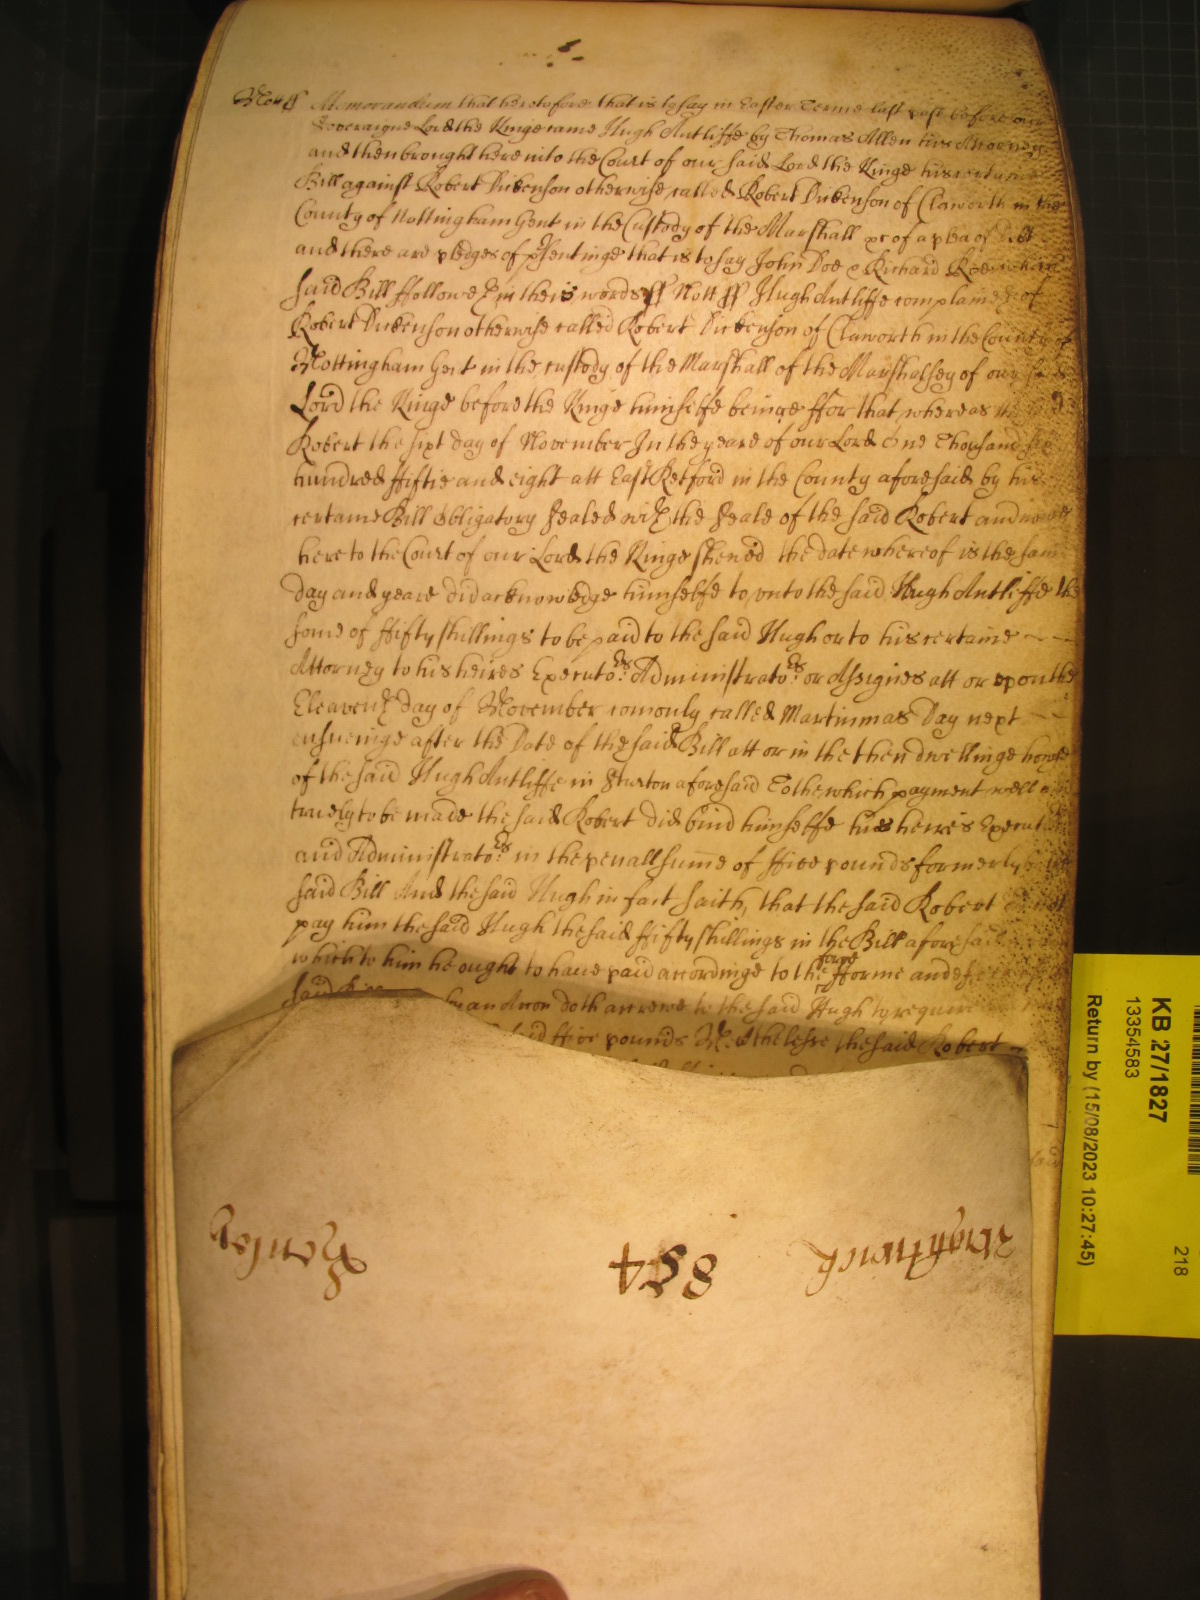 Nott ss Memorandum that heretofore that is to say in Easter Terme last past before our
Soveraigne Lord the Kinge came Hugh Antliffe by Thomas Allen his Attorney
and then brought here into the Court of our said Lord the Kinge his certaine
Bill against Robert Dickenson otherwise called Robert Dickenson of Claworth in the
County of Nottingham Gent in the Custody of the Marshall &c of a plea of Debt
and there are pledges of psentinge that is to say John Doe & Richard Roe which
said Bill ffolloweth in theis words ss Nott ss Hugh Antliffe complaineth of
Robert Dickenson otherwise called Robert Dickenson of Claworth in the County of
Nottingham Gent in the custody of the Marshall of the Marshalsey of our said
Lord the Kinge before the Kinge himselfe beinge ffor that whereas the
Robert the sixt day of November In the yeare of our Lord One Thousand six
hundred ffiftie and eight att East Retford in the County aforesaid by his
certaine Bill Obligatory sealed with the seale of the said Robert and nowe
here to the Court of our Lord the Kinge shewed the date whereof is the same
day and yeare did acknowledge himselfe to, unto the said Hugh Antliffe the
some of ffifty shillings to be paid to the said Hugh or to his certaine
Attorney to his heires Executors Administrators or Assignes att or upon the
Eleaventh day of November comonly called Martinmas Day next
ensueinge after the Date of the said Bill att or in the then dwellinge howse
of the said Hugh Antliffe in Sturton aforesaid To the which payment well and
truely to be made the said Robert did bind himselfe his heires Executors
and Administrators in the penall sume of ffive pounds formerly
said Bill And the said Hugh in fact saith, that the said Robert did not
pay him the said Hugh the said ffifty shillings in the Bill aforesaid
which to him he ought to have paid accordinge to the forme and effect
said hereupon an Accon doth accrewe to the said Hugh to require
said ffive pounds Neverthelesse the said Robert
Wightwick 854 Henley
KB 27/1827
13354583
218
Return by (15/08/2023 10:27:45)